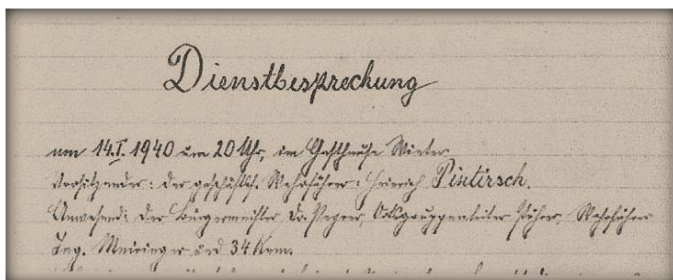 Dienstbesprechung
am 14.I.1940 um 20 Uhr, im Gasthause Winter.
Vorsitzender: der geschäftsf. Wehrführer: Heinrich Pintirsch.
Anwesend: Der Bürgermeister Dr. Ortsgruppenleiter Wehrführer
Ing. Meiringer und 34 Kam.